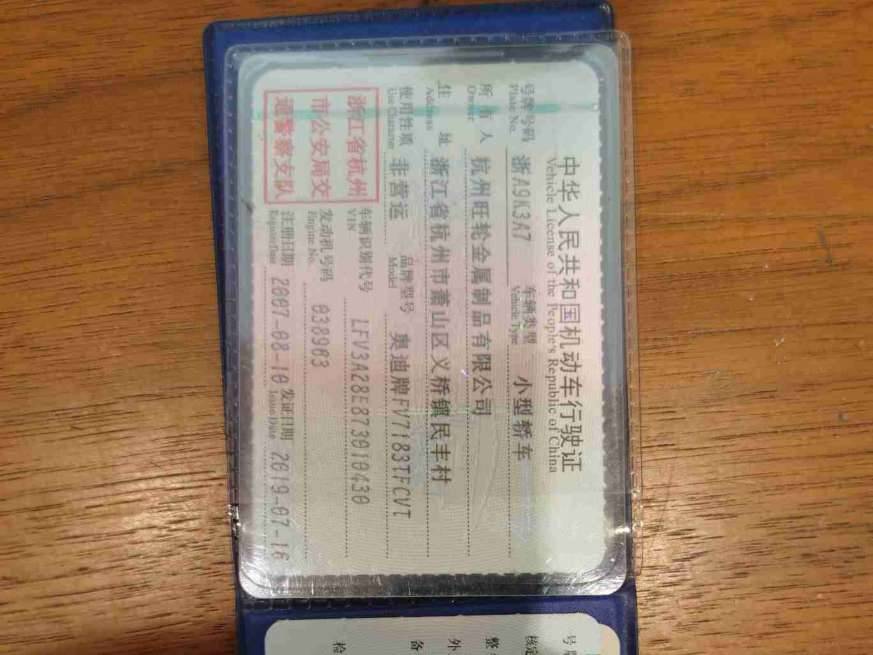 中华人民共和国机动车行驶证
Vehicle License of the People's Republic of China
号牌号码 浙A9K3A7 车辆类型 小型轿车
Plate No. Vehicle Type
所有人 杭州旺轮金属制品有限公司
Owner
住址 浙江省杭州市萧山区义桥镇民丰村
Address
使用性质 非营运 品牌型号 奥迪牌FV7183TFCVT
Use Character Model
浙江省杭州
市公安局交
通警察支队
车辆识别代号 LFV3A28E873010430
VIN
发动机号码 038903
Engine No.
注册日期 2007-08-10 发证日期 2019-07-16
Register Date Issue Date
号牌
核定
整
外
备
检